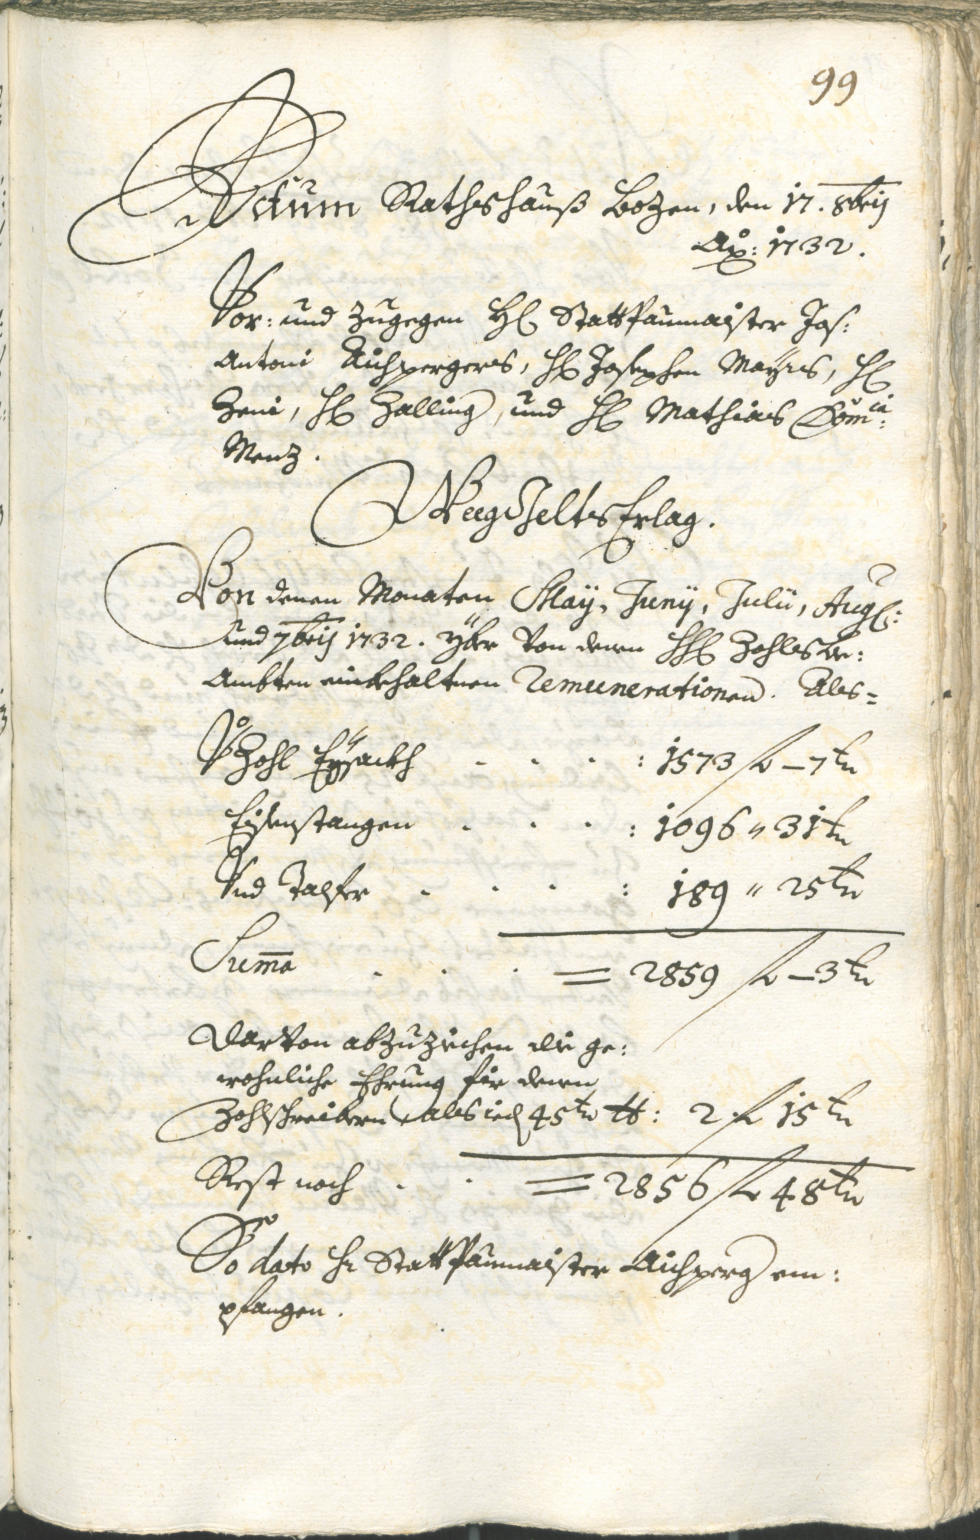 99
Actum Rathshauß Bozen, den 17. 8bris
Ao: 1732.
Vor: und zugegen H: Stattpaumaister Jos:
Antoni Aichpergers, H: Josephen Mayrs, H:
Zeni, H: Zalling, und H: Mathias
Menz.
WeegGelts Erlag.
Von denen Monaten May, Juny, July, Aug:
und 7bris 1732. yber von denen HH: Zohls be:
Ambten einbehaltnen Remunerationen. Als=
Zohl Eysackh . . . . : 1573 f – 7 kr
Eisenstangen . . . : 1096 " 31 kr
Und Talfer . . . : 189 " 25 kr
Suma . . . = 2859 f – 3 kr
Darvon abzuziehen die ge:
wohnliche Ehrung fir denen
Zohlschreibern, als ied 45 kr tt: 2 f 15 kr
Rest noch . . = 2856 f 48 kr
So dato H: Stattpaumaister Aichperg em:
pfangen.